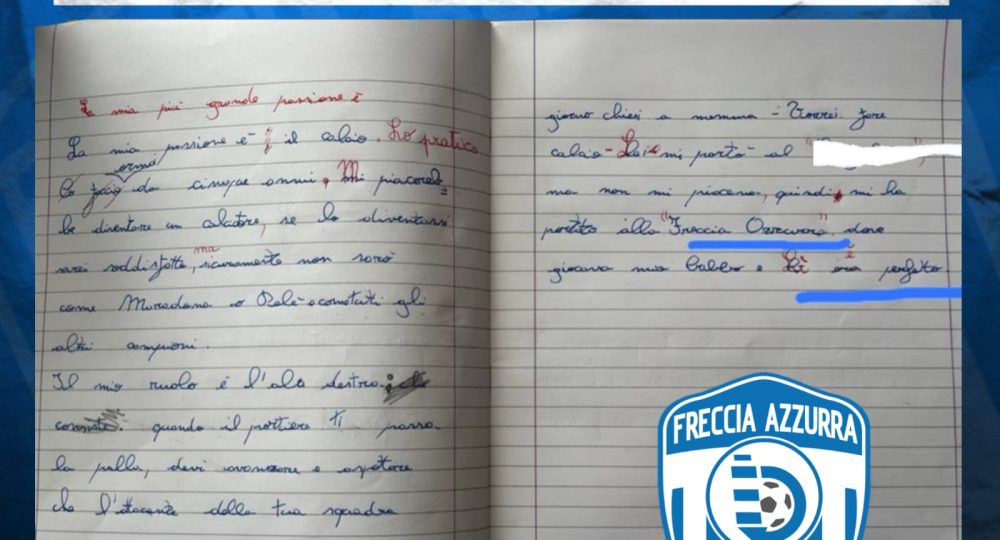 La mia più grande passione è
La mia passione è il calcio. Lo pratico
ormai
da cinque anni, Mi piacereb=
be diventare un calciatore, se lo diventassi
ma
sarei soddisfatto, sicuramente non sarò
come Maradona o Pelè o tutti gli
altri campioni.
Il mio ruolo è l'ala destra:
quando il portiere ti passa
la palla, devi avanzare e aspettare
che l'attacante della tua squadra
giorno chiesi a mamma - Vorrei fare
calcio - Lei mi portò al "
ma non mi piaceva, quindi mi ha
portato alla "Freccia Azzurra" dove
giocava mio babbo e lì è perfetto
FRECCIA AZZURRA